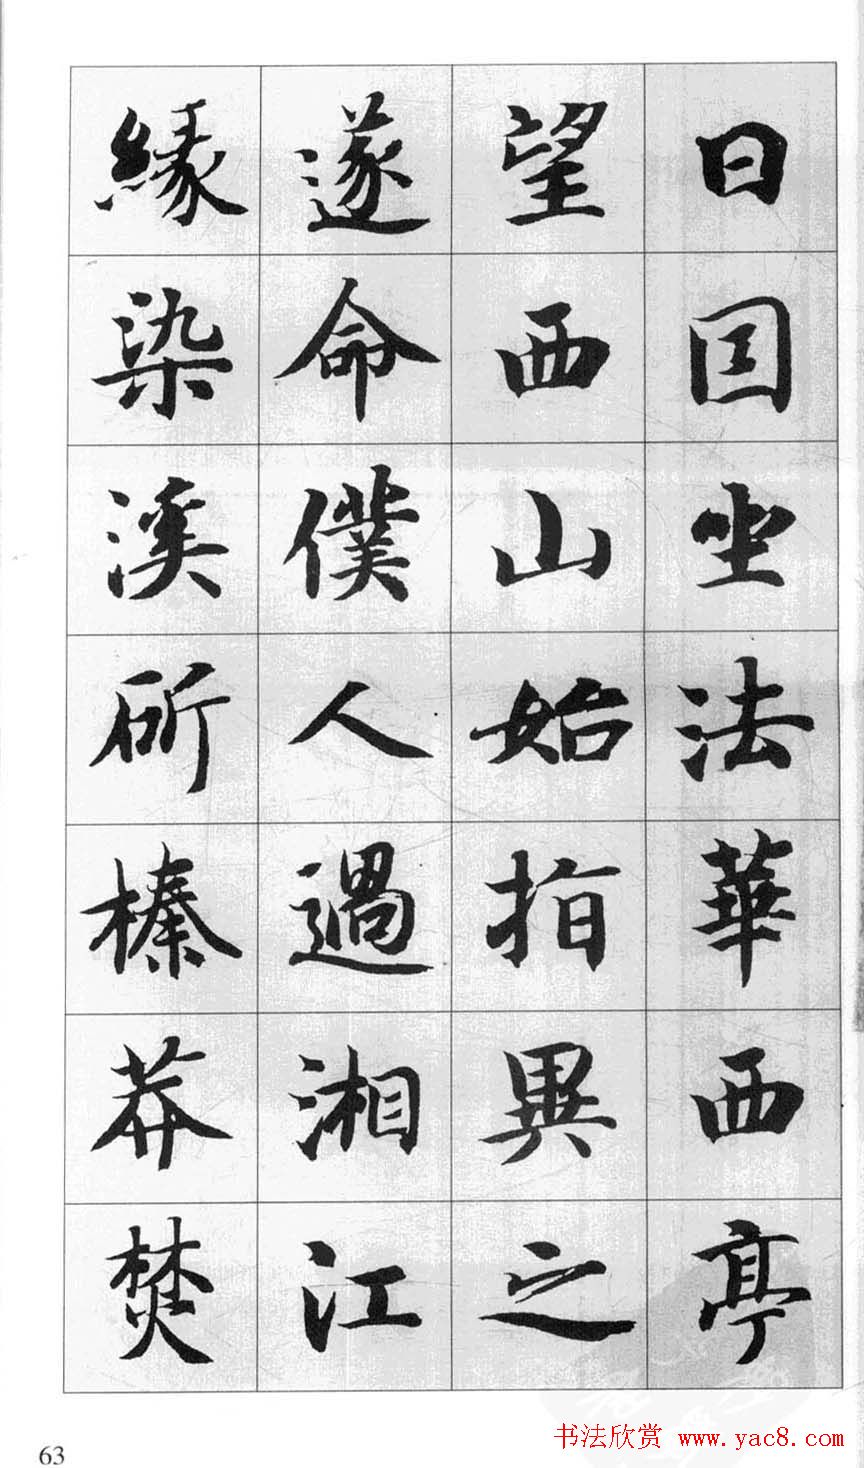 日因坐法華西亭
望西山始指異之
遂命僕人過湘江
緣染溪斫榛莽焚
63
书法欣赏 www.yac8.com